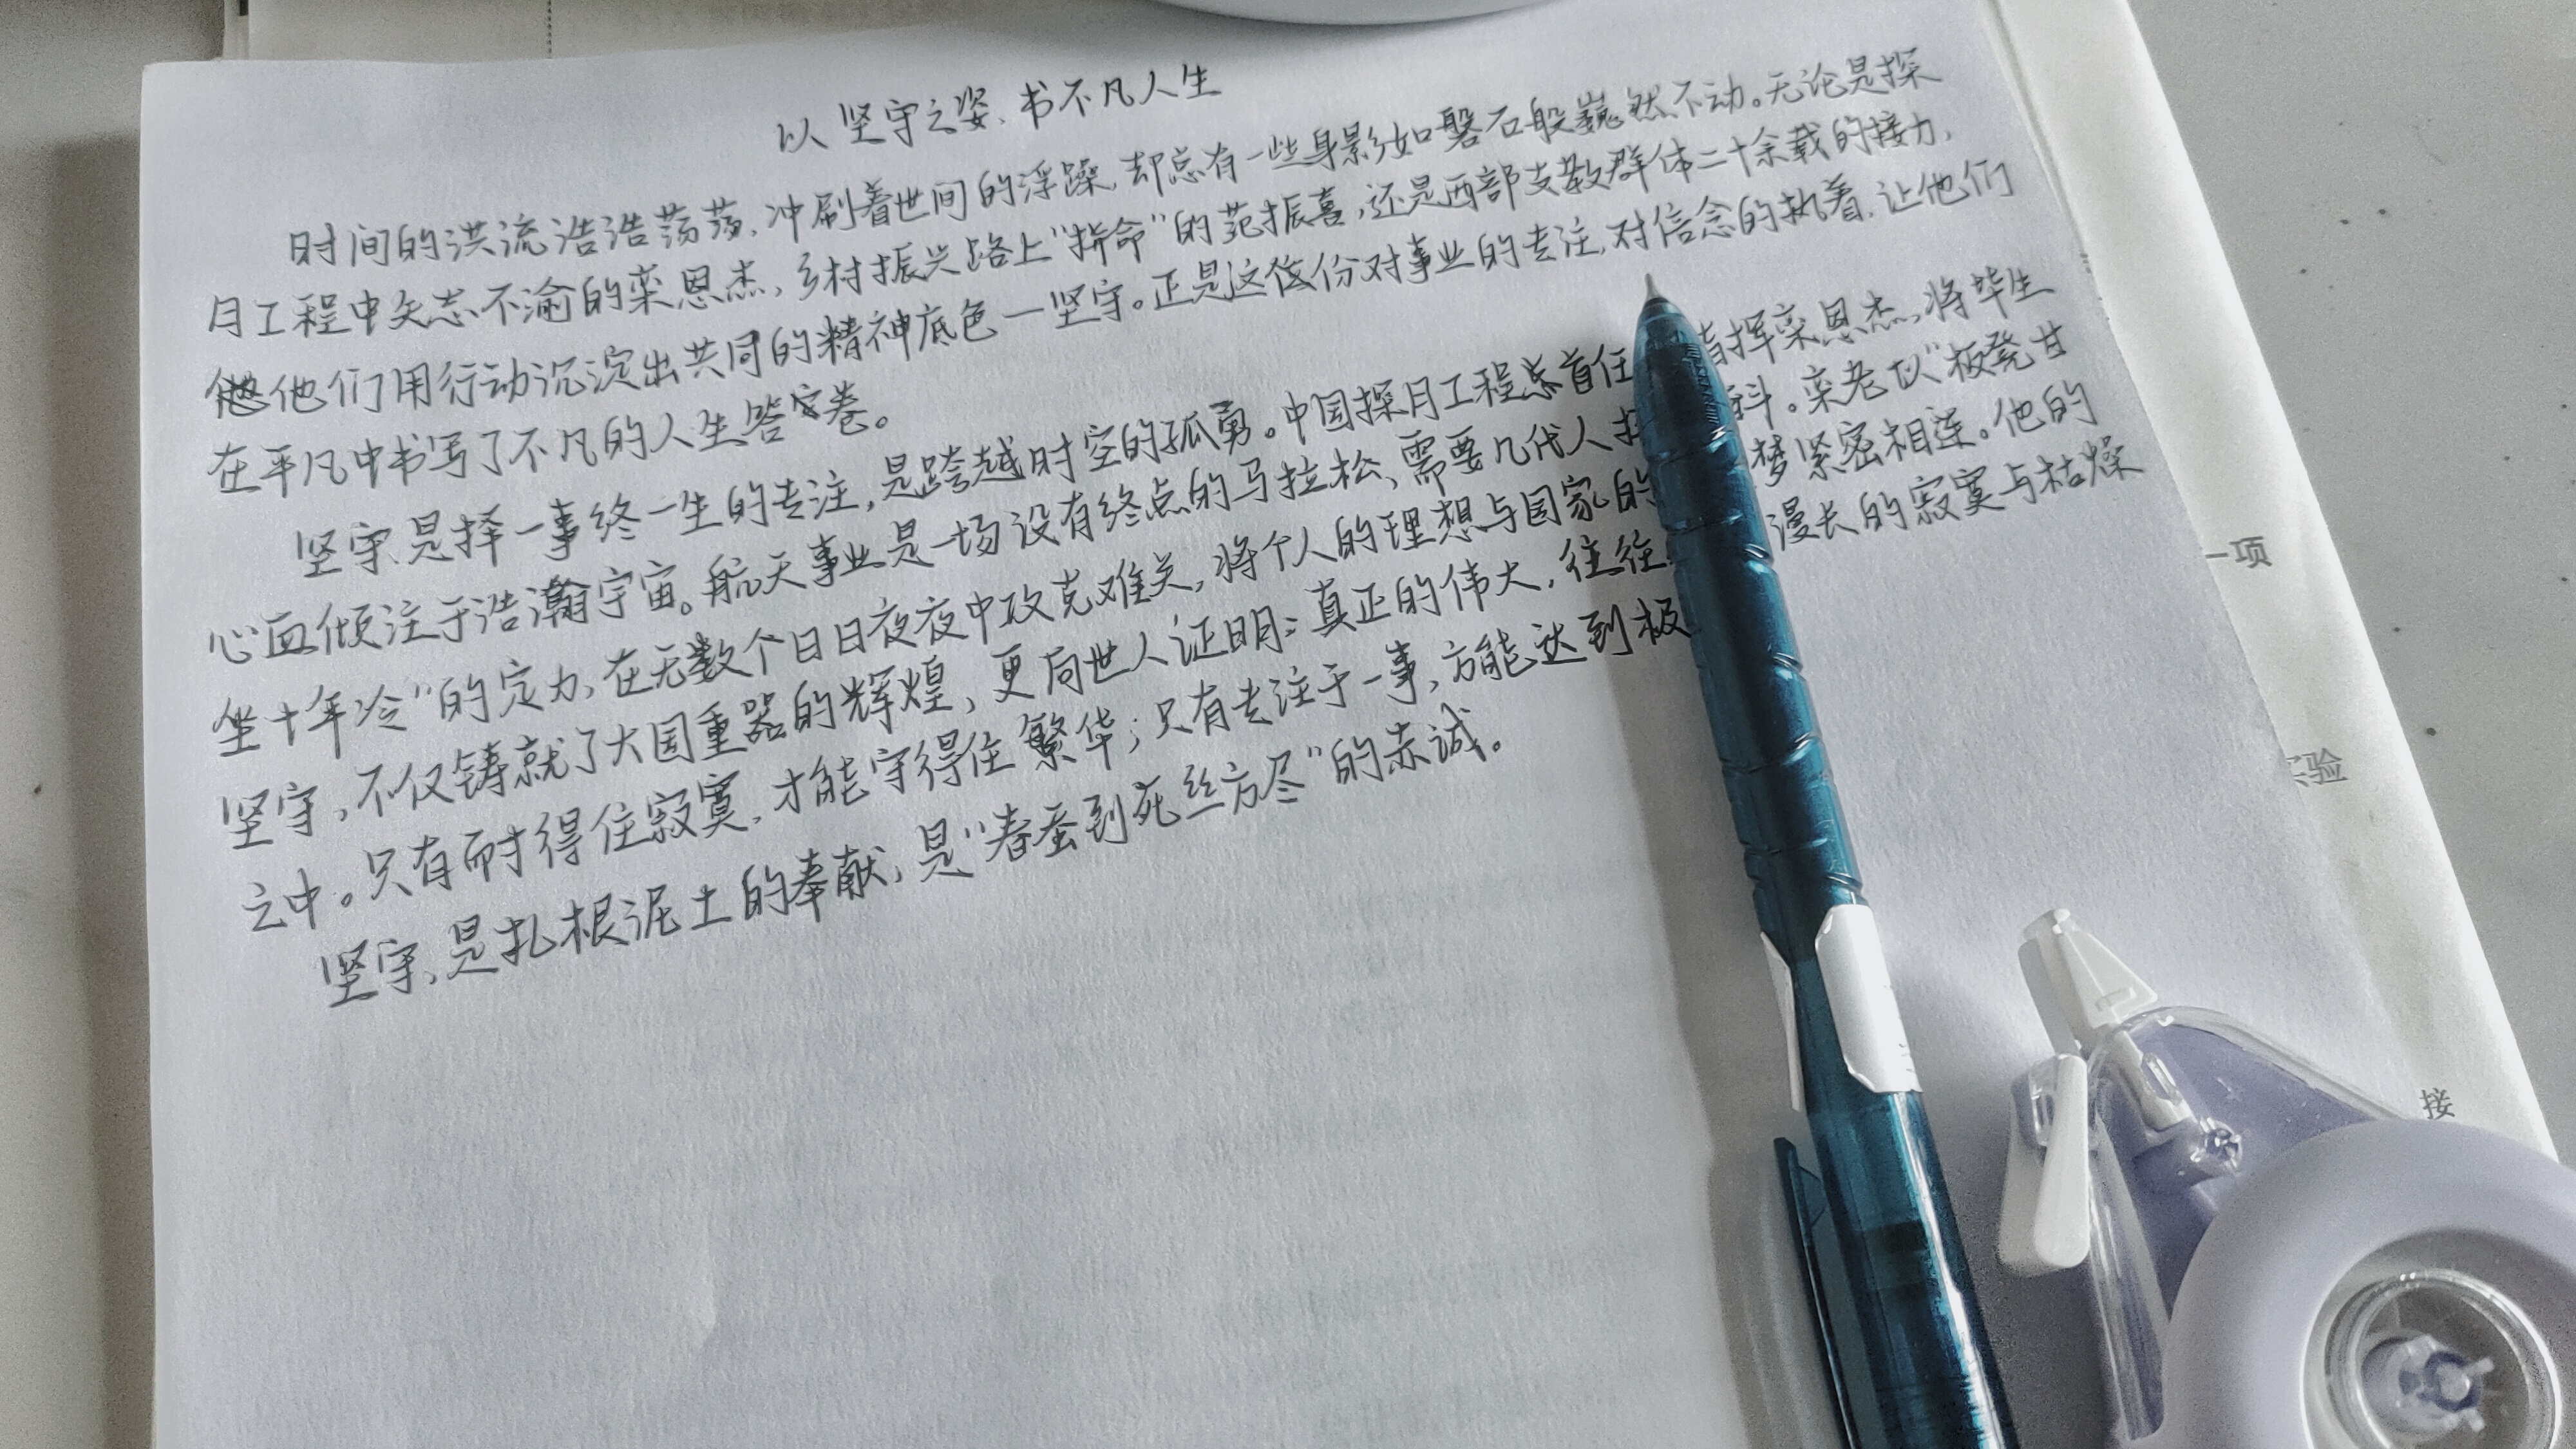 以坚守之姿、书不凡人生
时间的洪流浩浩荡荡,冲刷着世间的浮躁,却总有一些身影如磐石般巍然不动。无论是探
月工程中矢志不渝的栾恩杰,乡村振兴路上“拚命”的范振喜,还是西部支教群体二十余载的接力,
他们用行动沉淀出共同的精神底色一坚守。正是这份对事业的专注,对信念的执着,让他们
在平凡中书写了不凡的人生答卷。
坚守,是择一事终一生的专注,是跨越时空的孤勇。中国探月工程首任 指挥栾恩杰,将毕生
心血倾注于浩瀚宇宙。航天事业是一场没有终点的马拉松,需要几代人 。栾老以“板凳甘
坐十年冷”的定力,在无数个日日夜夜中攻克难关,将个人的理想与国家的 梦紧密相连。他的
坚守,不仅铸就了大国重器的辉煌,更向世人证明:真正的伟大,往往 漫长的寂寞与枯燥
之中。只有耐得住寂寞,才能守得住繁华;只有专注于一事,方能达到极
坚守,是扎根泥土的奉献,是“春蚕到死丝方尽”的赤诚。
一项
验
接